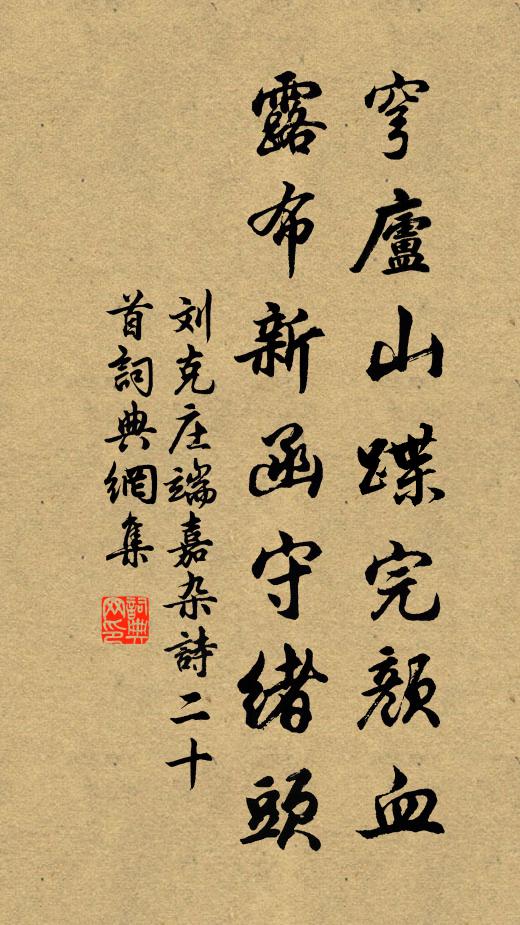 穹廬山蹀完顏血
露布新函守緒頭
刘克庄端嘉杂詩二十
首詞典網集
詞典
网印